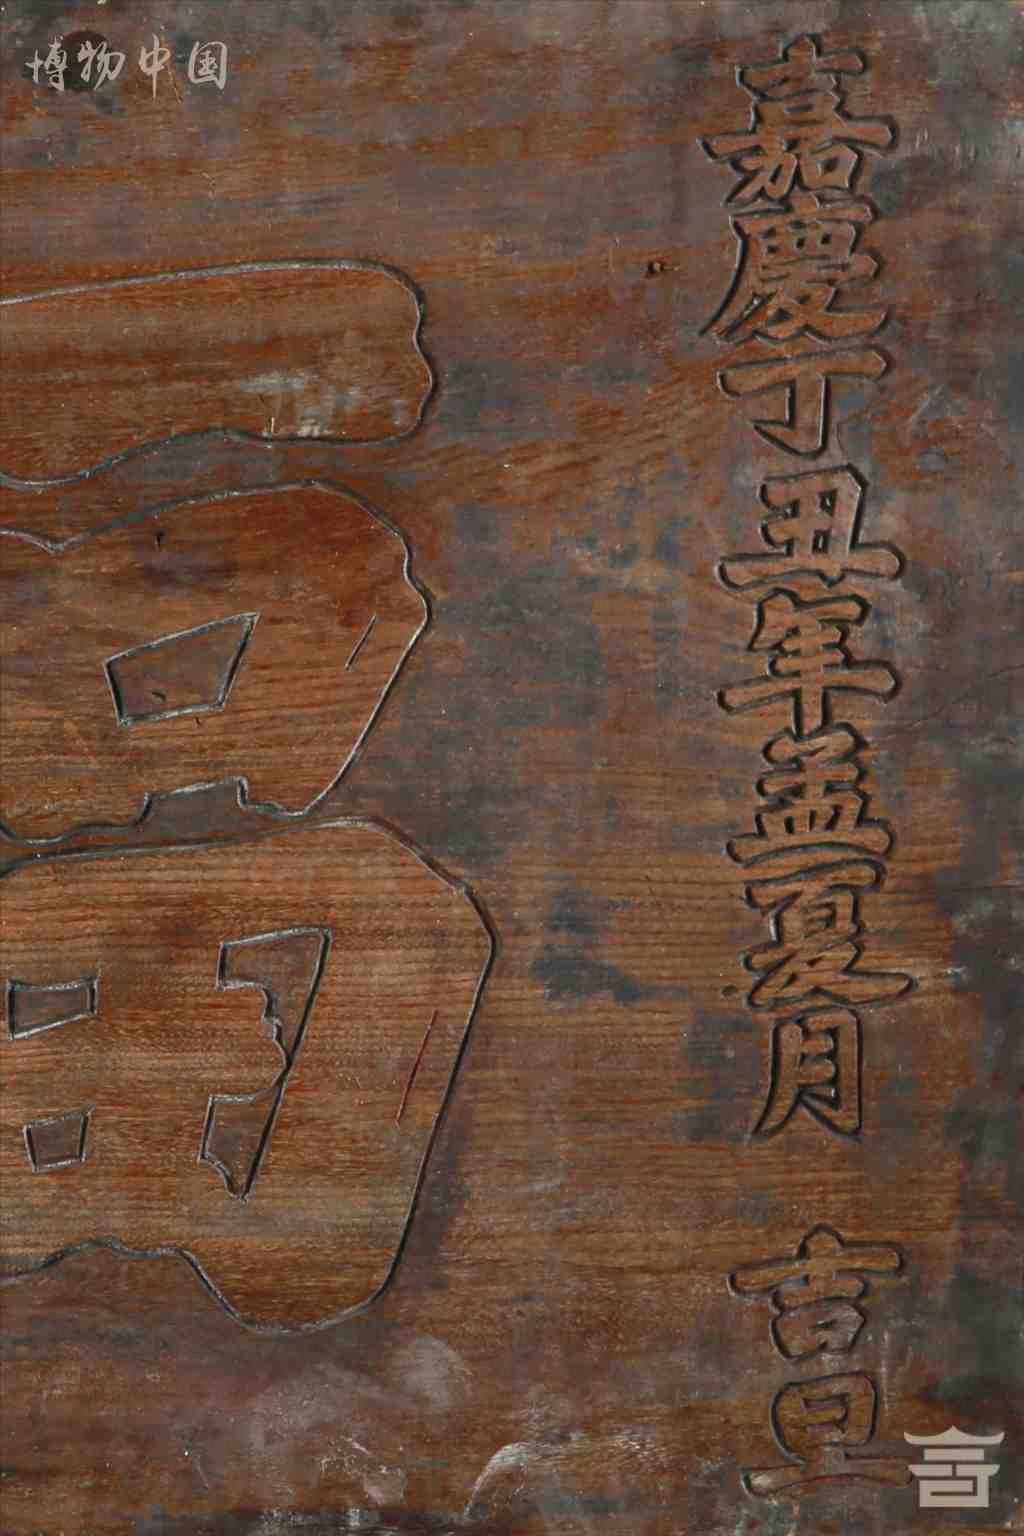 博物中国
嘉慶丁丑年孟夏月 吉旦